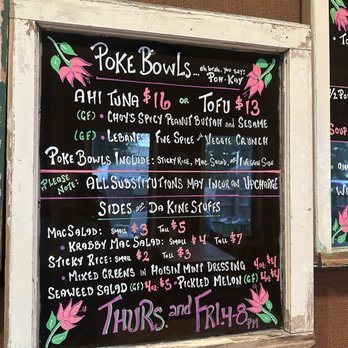 POKE BOWLS... eh brah, you say: POH-KAY
AHI TUNA $16 OR TOFU $13
(GF) • CHOY'S SPICY PEANUT BUTTAH and SESAME
(GF) • LEBANESE FIVE SPICE and VEGGIE CRUNCH
POKE BOWLS INCLUDE: STICKY RICE, MAC SALAD, and VEGGIE SIDE
PLEASE NOTE: ALL SUBSTITUTIONS MAY INCUR AN UPCHARGE
SIDES and DA KINE STUFFS
MAC SALAD: SMALL $3 TALL $5
• KRABBY MAC SALAD: SMALL $4 TALL $7
STICKY RICE: SMALL $2 TALL $3
• MIXED GREENS IN HOISIN MINT DRESSING 4oz $4
SEAWEED SALAD (GF) 4oz $5 • PICKLED MELON (GF) 4oz $4
THURS. and FRI. 4-8pm
SOUP